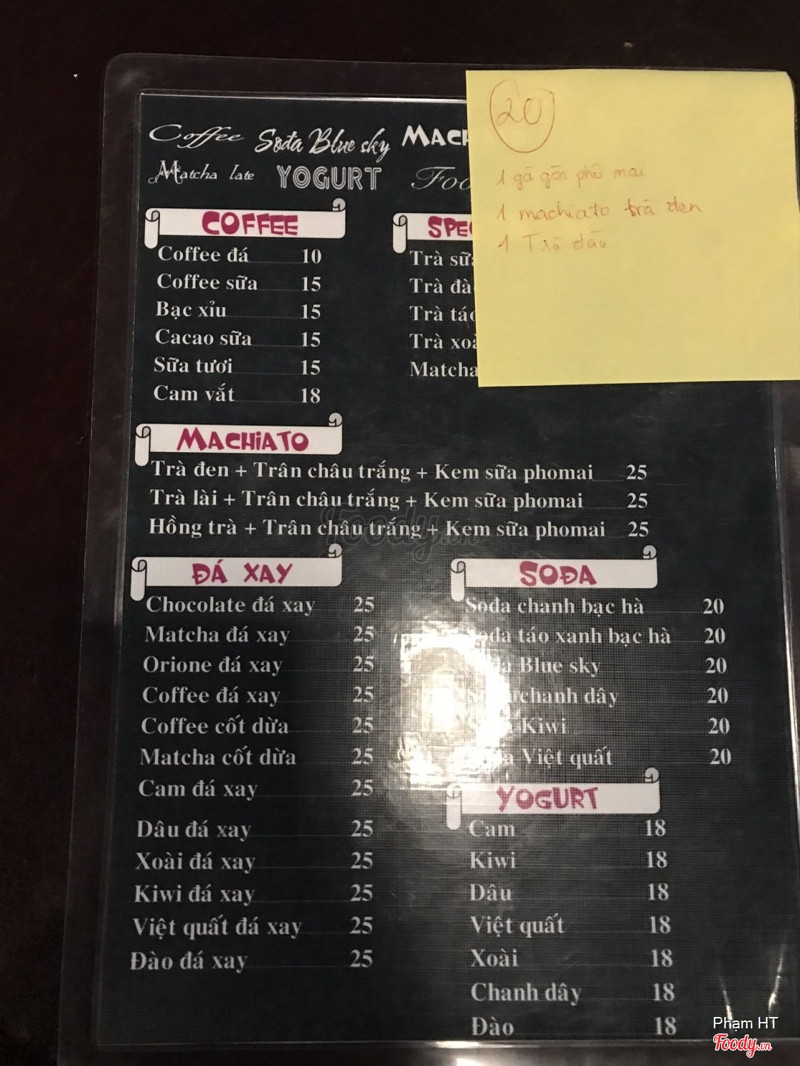 Coffee Sođa Blue sky MACH
Matcha late YOGURT Foo
20
1 gà gòn phô mai
1 machiato trà đen
1 Trà dâu
COFFEE
Coffee đá 10
Coffee sữa 15
Bạc xỉu 15
Cacao sữa 15
Sữa tươi 15
Cam vắt 18
SPE
Trà sữ
Trà đà
Trà táo
Trà xoà
Matcha
MACHiATO
Trà đen + Trân châu trắng + Kem sữa phomai 25
Trà lài + Trân châu trắng + Kem sữa phomai 25
Hồng trà + Trân châu trắng + Kem sữa phomai 25
ĐÁ XAY
Chocolate đá xay 25
Matcha đá xay 25
Orione đá xay 25
Coffee đá xay 25
Coffee cốt dừa 25
Matcha cốt dừa 25
Cam đá xay 25
Dâu đá xay 25
Xoài đá xay 25
Kiwi đá xay 25
Việt quất đá xay 25
Đào đá xay 25
SOĐA
Sođa chanh bạc hà 20
Sođa táo xanh bạc hà 20
Blue sky 20
chanh dây 20
Kiwi 20
Việt quất 20
YOGURT
Cam 18
Kiwi 18
Dâu 18
Việt quất 18
Xoài 18
Chanh dây 18
Đào 18
Phạm HT
Foody.vn